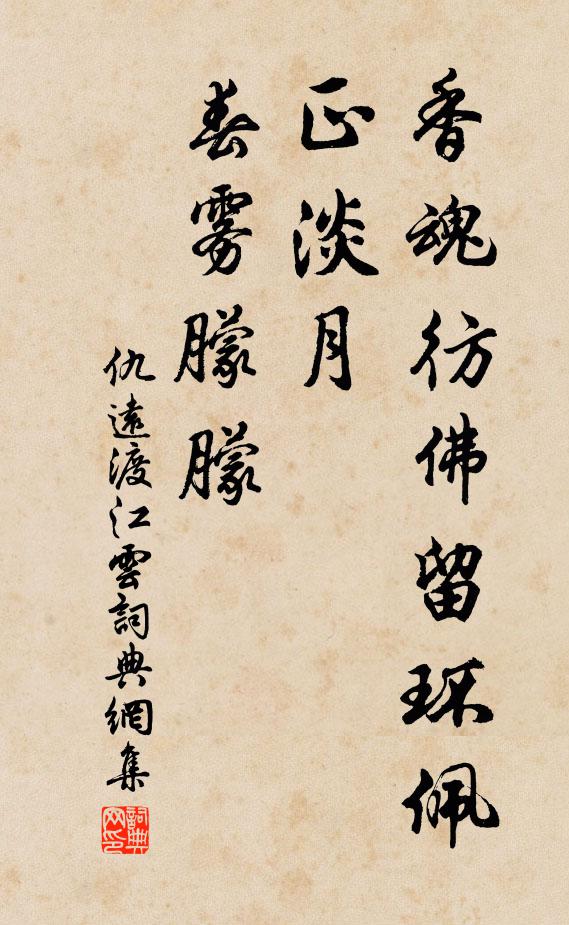 香魂彷佛留环佩
正淡月
春雾朦朦
仇遠渡江雲詞典網集
詞典网印